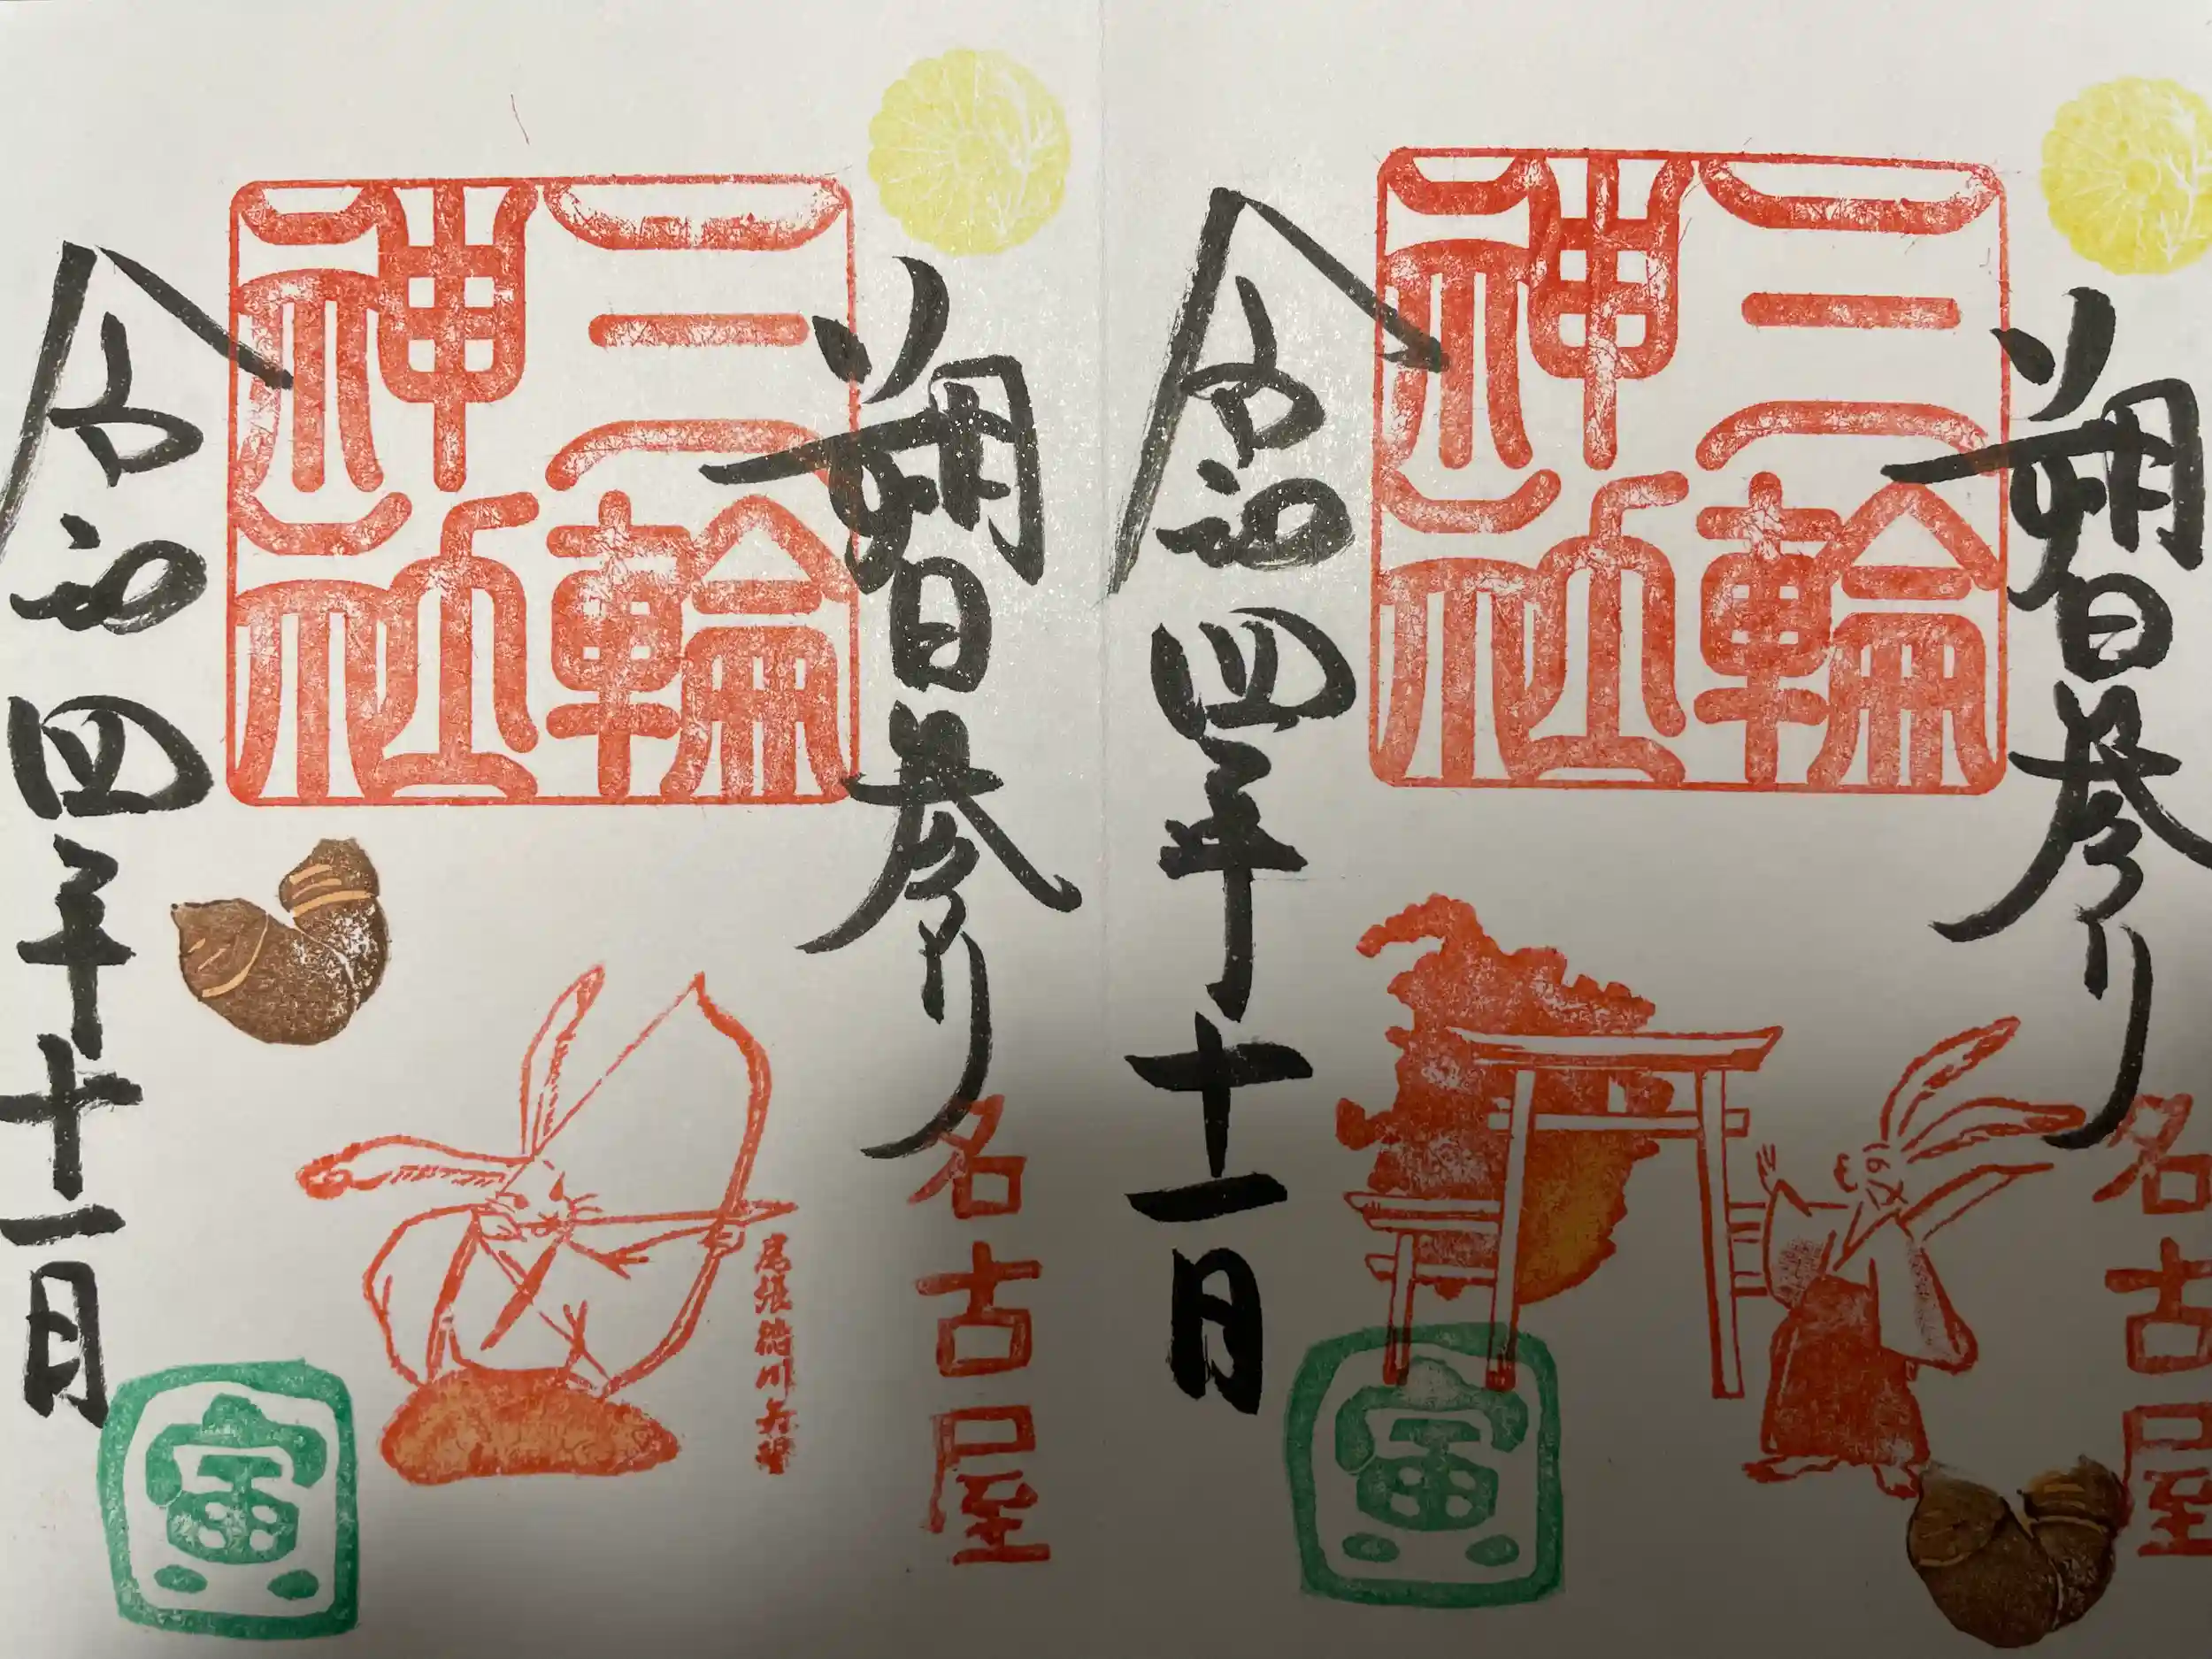 朔日参り
三輪
神社
名古屋
尾張徳川矢場
令和四年十一月
寅
朔日参り
三輪
神社
名古屋
令和四年十一月
寅